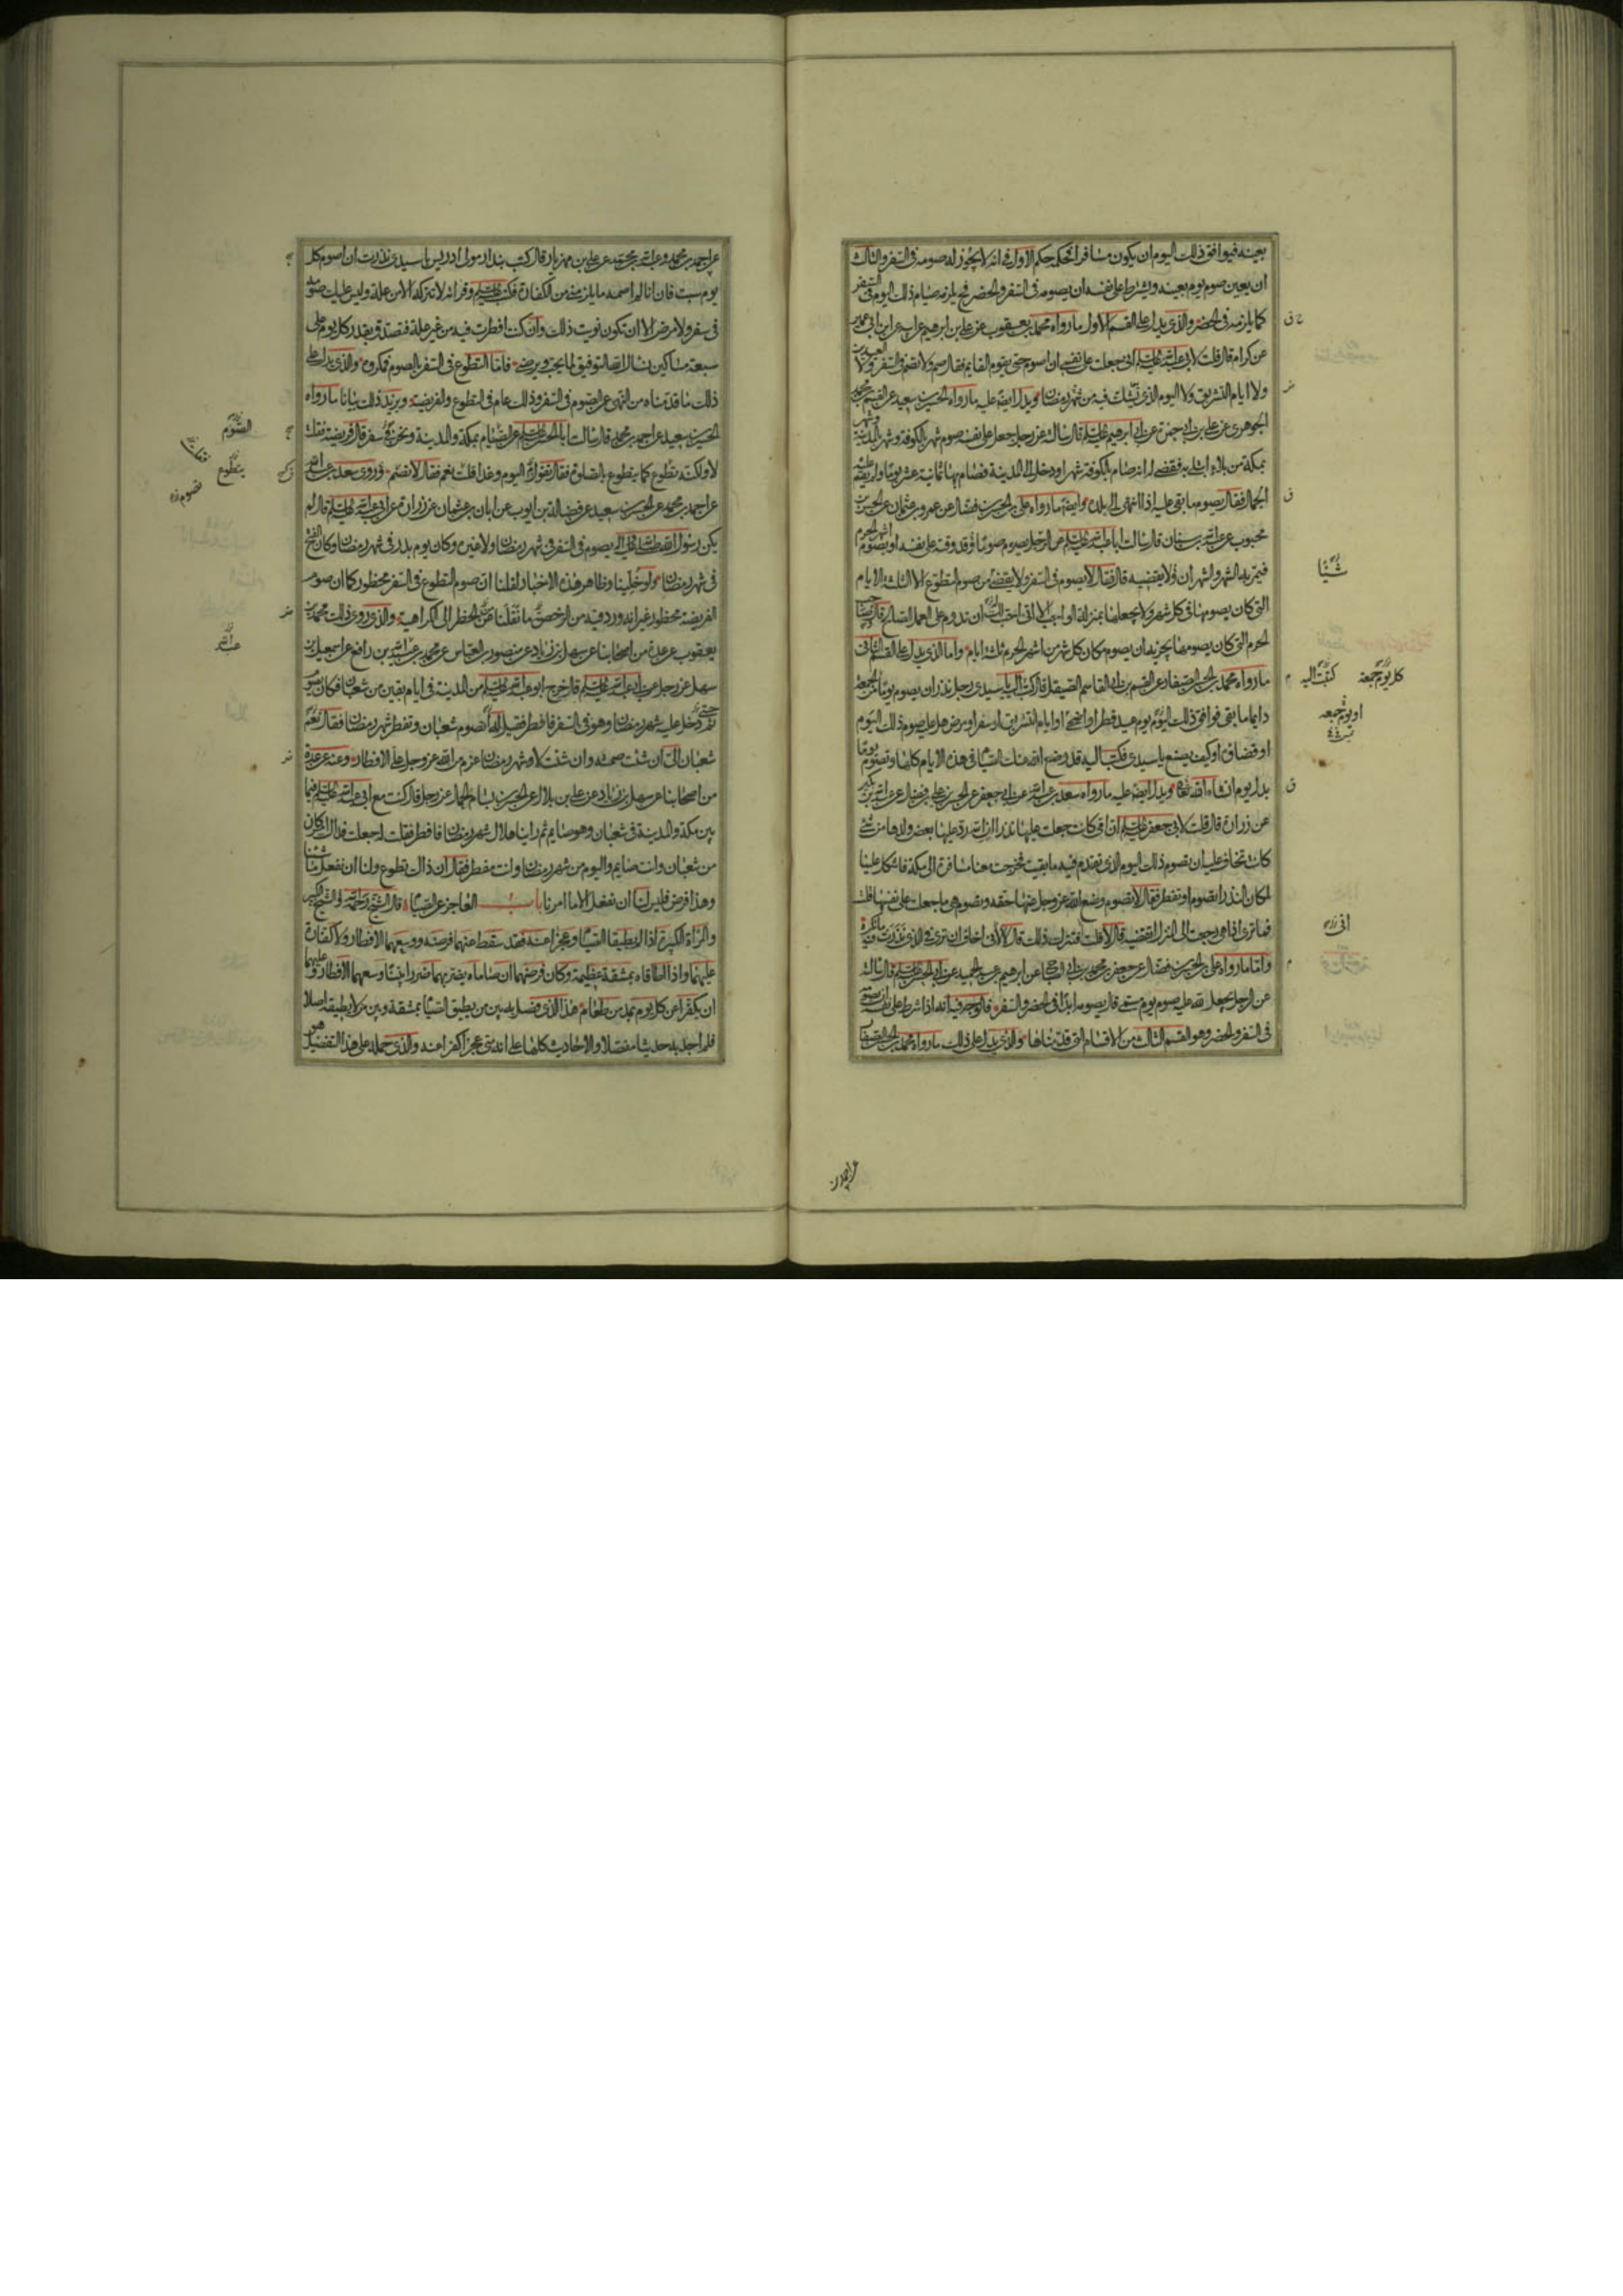 بعينه فيوافق ذلك اليوم ان يكون مسافرا فحكمه حكم الاول في انه لا يجوز له صومه في السفر والثالث
ان يعين صوم يوم بعينه ويشرط على نفسه ان يصومه في السفر والحضر فح يلزمه صيام ذلك اليوم في السفر
كما يلزمه في الحضر والذي يدل على القسم الاول ما رواه محمد بن يعقوب عن علي بن ابرهيم عن ابيه عن ابن ابي عمير
عن كرام قال قلت لابي عبد الله عليه السلم اني جعلت على نفسي ان اصوم حتى يقوم القايم فقال صم ولا تصم في السفر ولا العيدين
ولا ايام التشريق ولا اليوم الذي يشك فيه من شهر رمضان ويدل ايضا عليه ما رواه الحسين بن سعيد عن القسم بن محمد
الجوهري عن علي بن ابي حمزة عن ابي ابرهيم عليه السلم قال سالته عن رجل جعل على نفسه صوم شهر بالكوفة وشهر بالمدينة وشهر
بمكة من بلاء ابتلي به فقضي له انه صام بالكوفة شهرا ودخل الى المدينة فصام بها ثمانية عشر يوما ولم يقم عليه
الجمال فقال يصوم ما بقي عليه اذا انتهى الى بلده وايضا ما رواه علي بن الحسن بن فضال عن عمرو بن عثمان عن الحسن بن
محبوب عن عبد الله بن سنان قال سالت ابا عبد الله عليه السلم عن الرجل يصوم صوما قد وقته على نفسه او يصوم اشهر الحرم
فيمر به الشهر والشهران ولا يقضيه قال فقال لا يصوم في السفر ولا يقضي من صوم التطوع الا الثلثة الايام
التي كان يصومها في كل شهر ولا يجعلها بمنزلة الواجب الا اني احب لك ان تدوم على العمل الصالح قال وصاحب
الحرم التي كان يصومها يجزيه ان يصوم مكان كل شهر من اشهر الحرم ثلثة ايام واما الذي يدل على القسم الثاني
ما رواه محمد بن الحسن الصفار عن القسم بن ابي القاسم الصيقل قال كتب اليه يا سيدي رجل نذر ان يصوم يوما من الجمعة
دايما ما بقي فوافق ذلك اليوم يوم عيد فطر او اضحى او ايام التشريق او سفر او مرض هل عليه صوم ذلك اليوم
او قضاؤه او كيف يصنع يا سيدي فكتب اليه قد وضع الله عنك الصيام في هذه الايام كلها وتصوم يوما
بدل يوم ان شاء الله تعالى ويدل ايضا عليه ما رواه سعد بن عبد الله عن ابي جعفر عن الحسن بن علي بن فضال عن عبد الله بن بكير
عن زرارة قال قلت لابي جعفر عليه السلم ان امي كانت جعلت عليها نذرا ان الله رد عليها بعض ولدها من شئ
كانت تخاف عليه ان تصوم ذلك اليوم الذي تقدم فيه ما بقيت فخرجت معنا مسافرة الى مكة فاشكل علينا
لمكان النذر اتصوم او تفطر فقال لا تصوم وضع الله عز وجل عنها حقه وتصوم هي ما جعلت على نفسها قلت
فما ترى اذا هي رجعت الى المنزل اتقضيه قال لا قلت افتترك ذلك قال لا اني اخاف ان ترى في الذي نذرت فيه ما تكره
واما ما رواه علي بن الحسن بن فضال عن جعفر بن محمد بن ابي الصباح عن ابرهيم بن عبد الحميد عن ابي الحسن عليه السلم قال سالته
عن الرجل يجعل لله عليه صوم يوم مسمى قال يصومه ابدا في الحضر والسفر فالوجه فيه انه اذا شرط على نفسه ان يصومه
في السفر والحضر وهو القسم الثالث من الاقسام التي قدمناها والذي يدل على ذلك ما رواه محمد بن الحسن الصفار
شيئا
كل يوم جمعة
كتبت اليه
او يوم جمعه
امي
عن احمد بن
عن احمد بن محمد وعبد الله بن محمد عن علي بن مهزيار قال كتب بندار مولى ادريس يا سيدي نذرت ان اصوم كل
يوم سبت فان انا لم اصمه ما يلزمني من الكفارة فكتب عليه السلم وقراته لا تتركه الا من علة وليس عليك صومه
في سفر ولا مرض الا ان تكون نويت ذلك وان كنت افطرت فيه من غير علة فتصدق بقدر كل يوم على
سبعة مساكين نسال الله التوفيق لما يحب ويرضى فاما التطوع في السفر بالصوم فمكروه والذي يدل على
ذلك ما قدمناه من النهي عن الصوم في السفر وذلك عام في التطوع والفريضة ويزيد ذلك بيانا ما رواه
الحسين بن سعيد عن احمد بن محمد قال سالت ابا الحسن عليه السلم عن الصيام بمكة والمدينة ونحن في سفر قال فريضة فقلت
لا ولكنه تطوع كما يتطوع بالصلوة فقال تقول اليوم وغدا قلت نعم فقال لا تصم وروى سعد بن عبد الله
عن احمد بن محمد عن الحسين بن سعيد عن فضالة بن ايوب عن ابان بن عثمان عن زرارة عن ابي عبد الله عليه السلم قال لم
يكن رسول الله صلى الله عليه واله يصوم في السفر في شهر رمضان ولا غيره وكان يوم بدر في شهر رمضان وكان الفتح
في شهر رمضان ولو خلينا وظاهر هذه الاخبار لقلنا ان صوم التطوع في السفر محظور كما ان صوم
الفريضة محظور غير انه ورد فيه من الرخص ما نقلنا عن الحظر الى الكراهية والذي روى ذلك محمد بن
يعقوب عن عدة من اصحابنا عن سهل بن زياد عن منصور بن العباس عن محمد بن عبد الله بن رافع عن اسمعيل بن
سهل عن رجل عن ابي عبد الله عليه السلم قال خرج ابو عبد الله عليه السلم من المدينة في ايام بقين من شعبان فكان يصوم
ثم دخل عليه شهر رمضان وهو في السفر فافطر فقيل له اتصوم شعبان وتفطر شهر رمضان فقال نعم
شعبان الى ان شئت صمته وان شئت لا وشهر رمضان عزم من الله عز وجل على الافطار وعنه عن عدة
من اصحابنا عن سهل بن زياد عن علي بن بلال عن الحسن بن بسام الجمال عن رجل قال كنت مع ابي عبد الله عليه السلم فيما
بين مكة والمدينة في شعبان وهو صايم ثم راينا هلال شهر رمضان فافطر فقلت له جعلت فداك امس كان
من شعبان وانت صايم واليوم من شهر رمضان وانت مفطر فقال ان ذاك تطوع ولنا ان نفعل ما شئنا
وهذا فرض فليس لنا ان نفعل الا ما امرنا باب العاجز عن الصيام قال الشيخ رحمه الله والشيخ الكبير
والمراة الكبيرة اذا لم يطيقا الصيام وعجزا عنه فقد سقط عنهما فرضه ووسعهما الافطار ولا كفارة
عليهما واذا اطاقاه بمشقة عظيمة وكان مرضهما ان صاماه يضر بهما ضررا بينا وسعهما الافطار وعليهما
ان يكفرا عن كل يوم بمد من طعام هذا الذي فصل به بين من يطيق الصيام بمشقة وبين من لا يطيقه اصلا
فلم اجد به حديثا مفصلا والاحاديث كلها على انه متى عجزا كفرا عنه والذي حمله على هذا التفصيل هو
الصوم
يتطوع
عبد الله